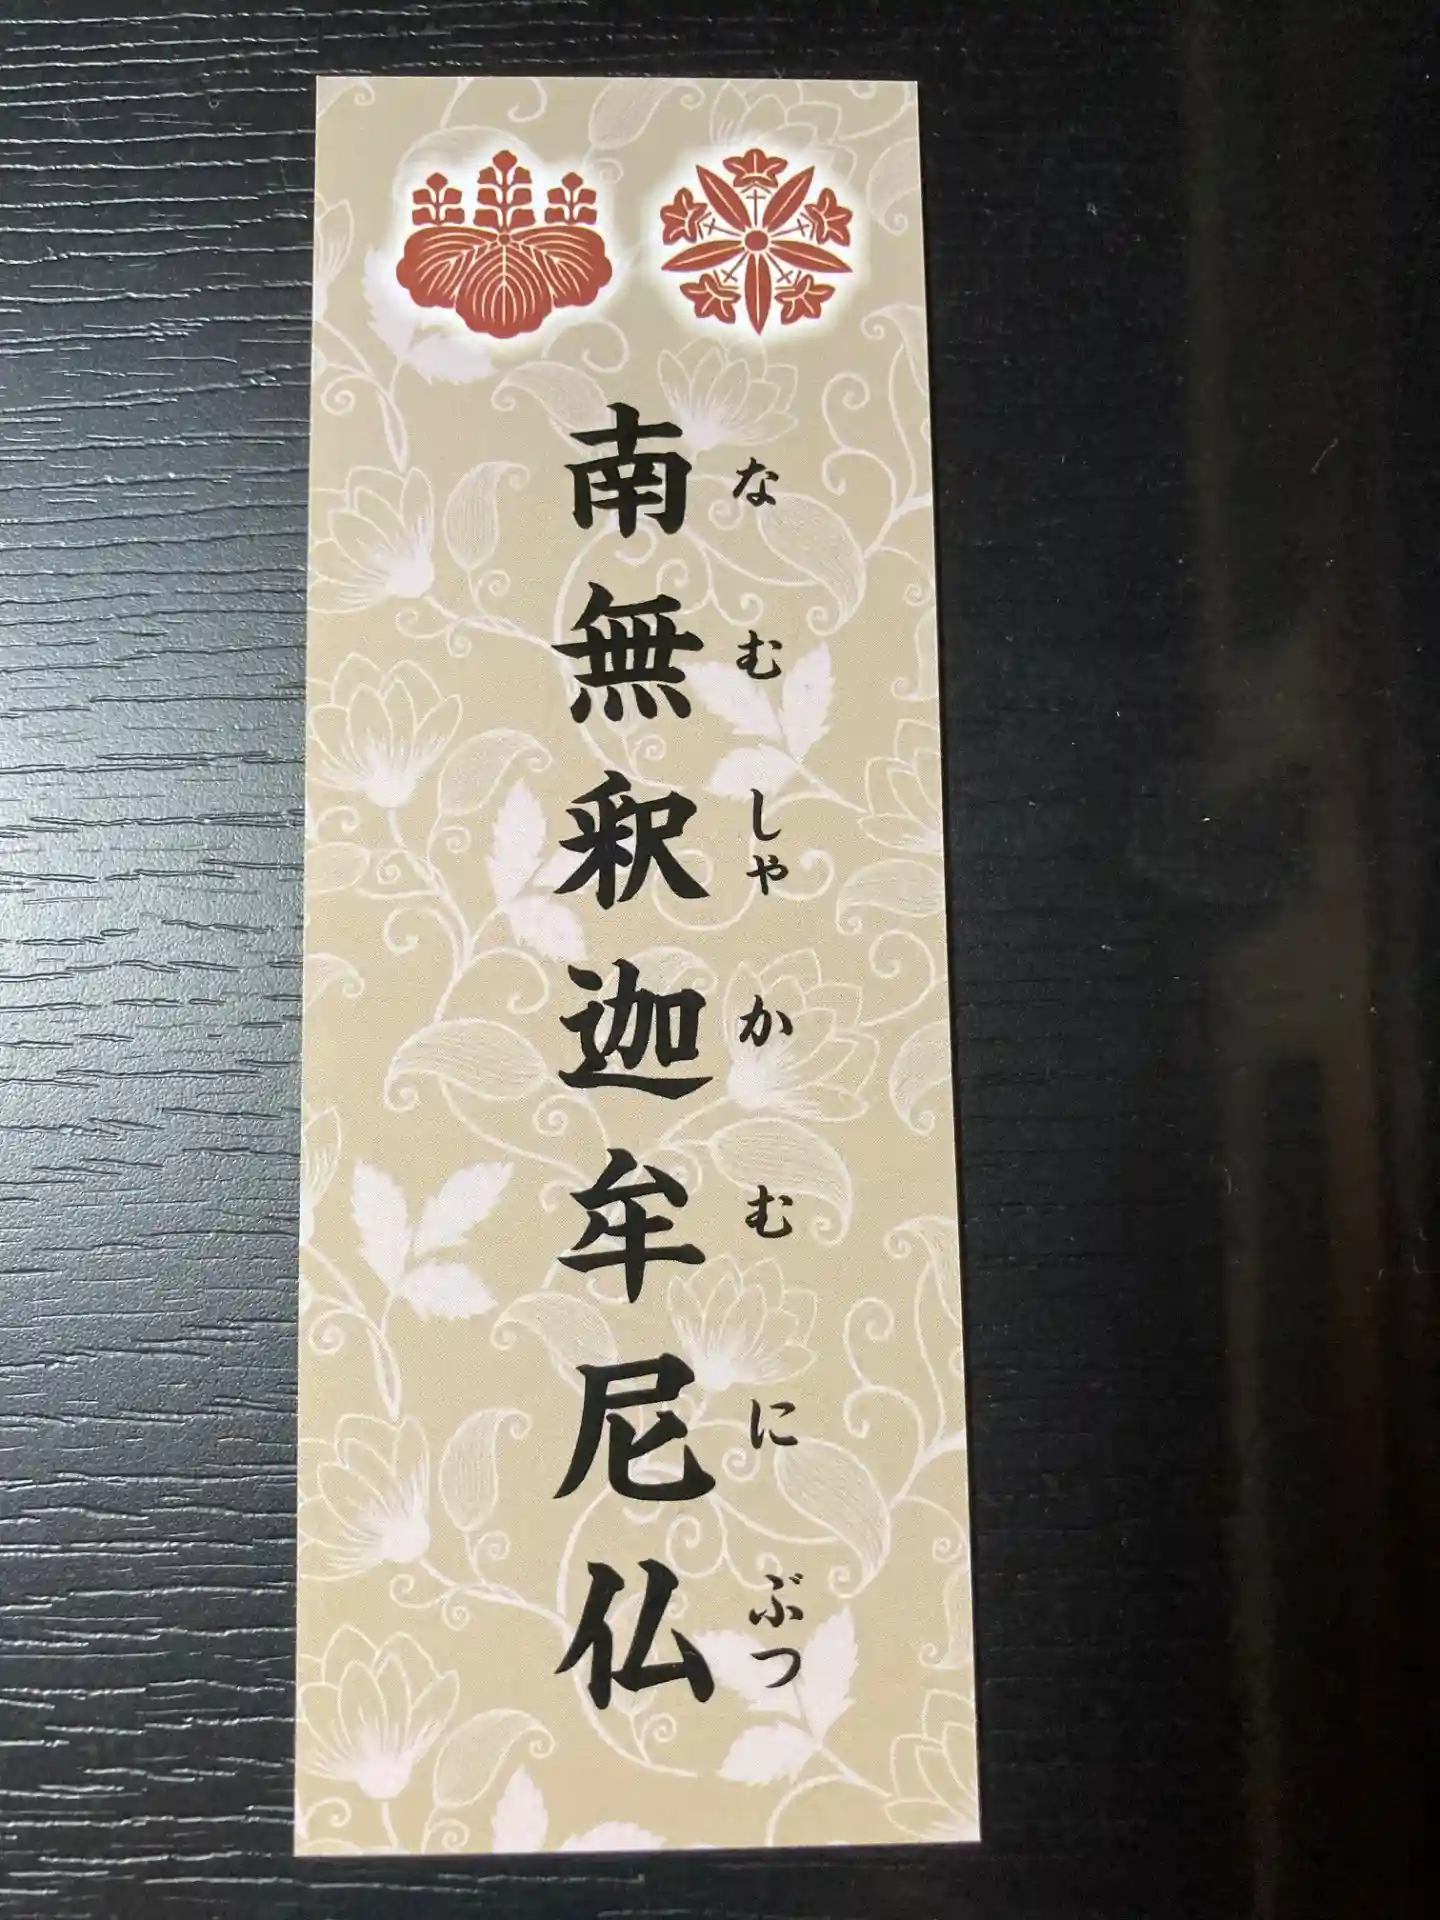 南無釈迦牟尼仏
なむしゃかむにぶつ